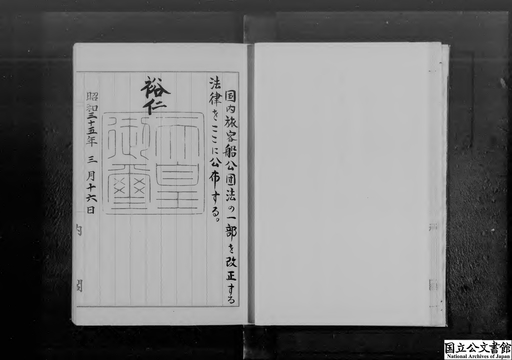 国内旅客船公団法の一部を改正する
法律をここに公布する。
裕仁
天皇
御璽
昭和三十五年三月十六日
内閣
国立公文書館
National Archives of Japan